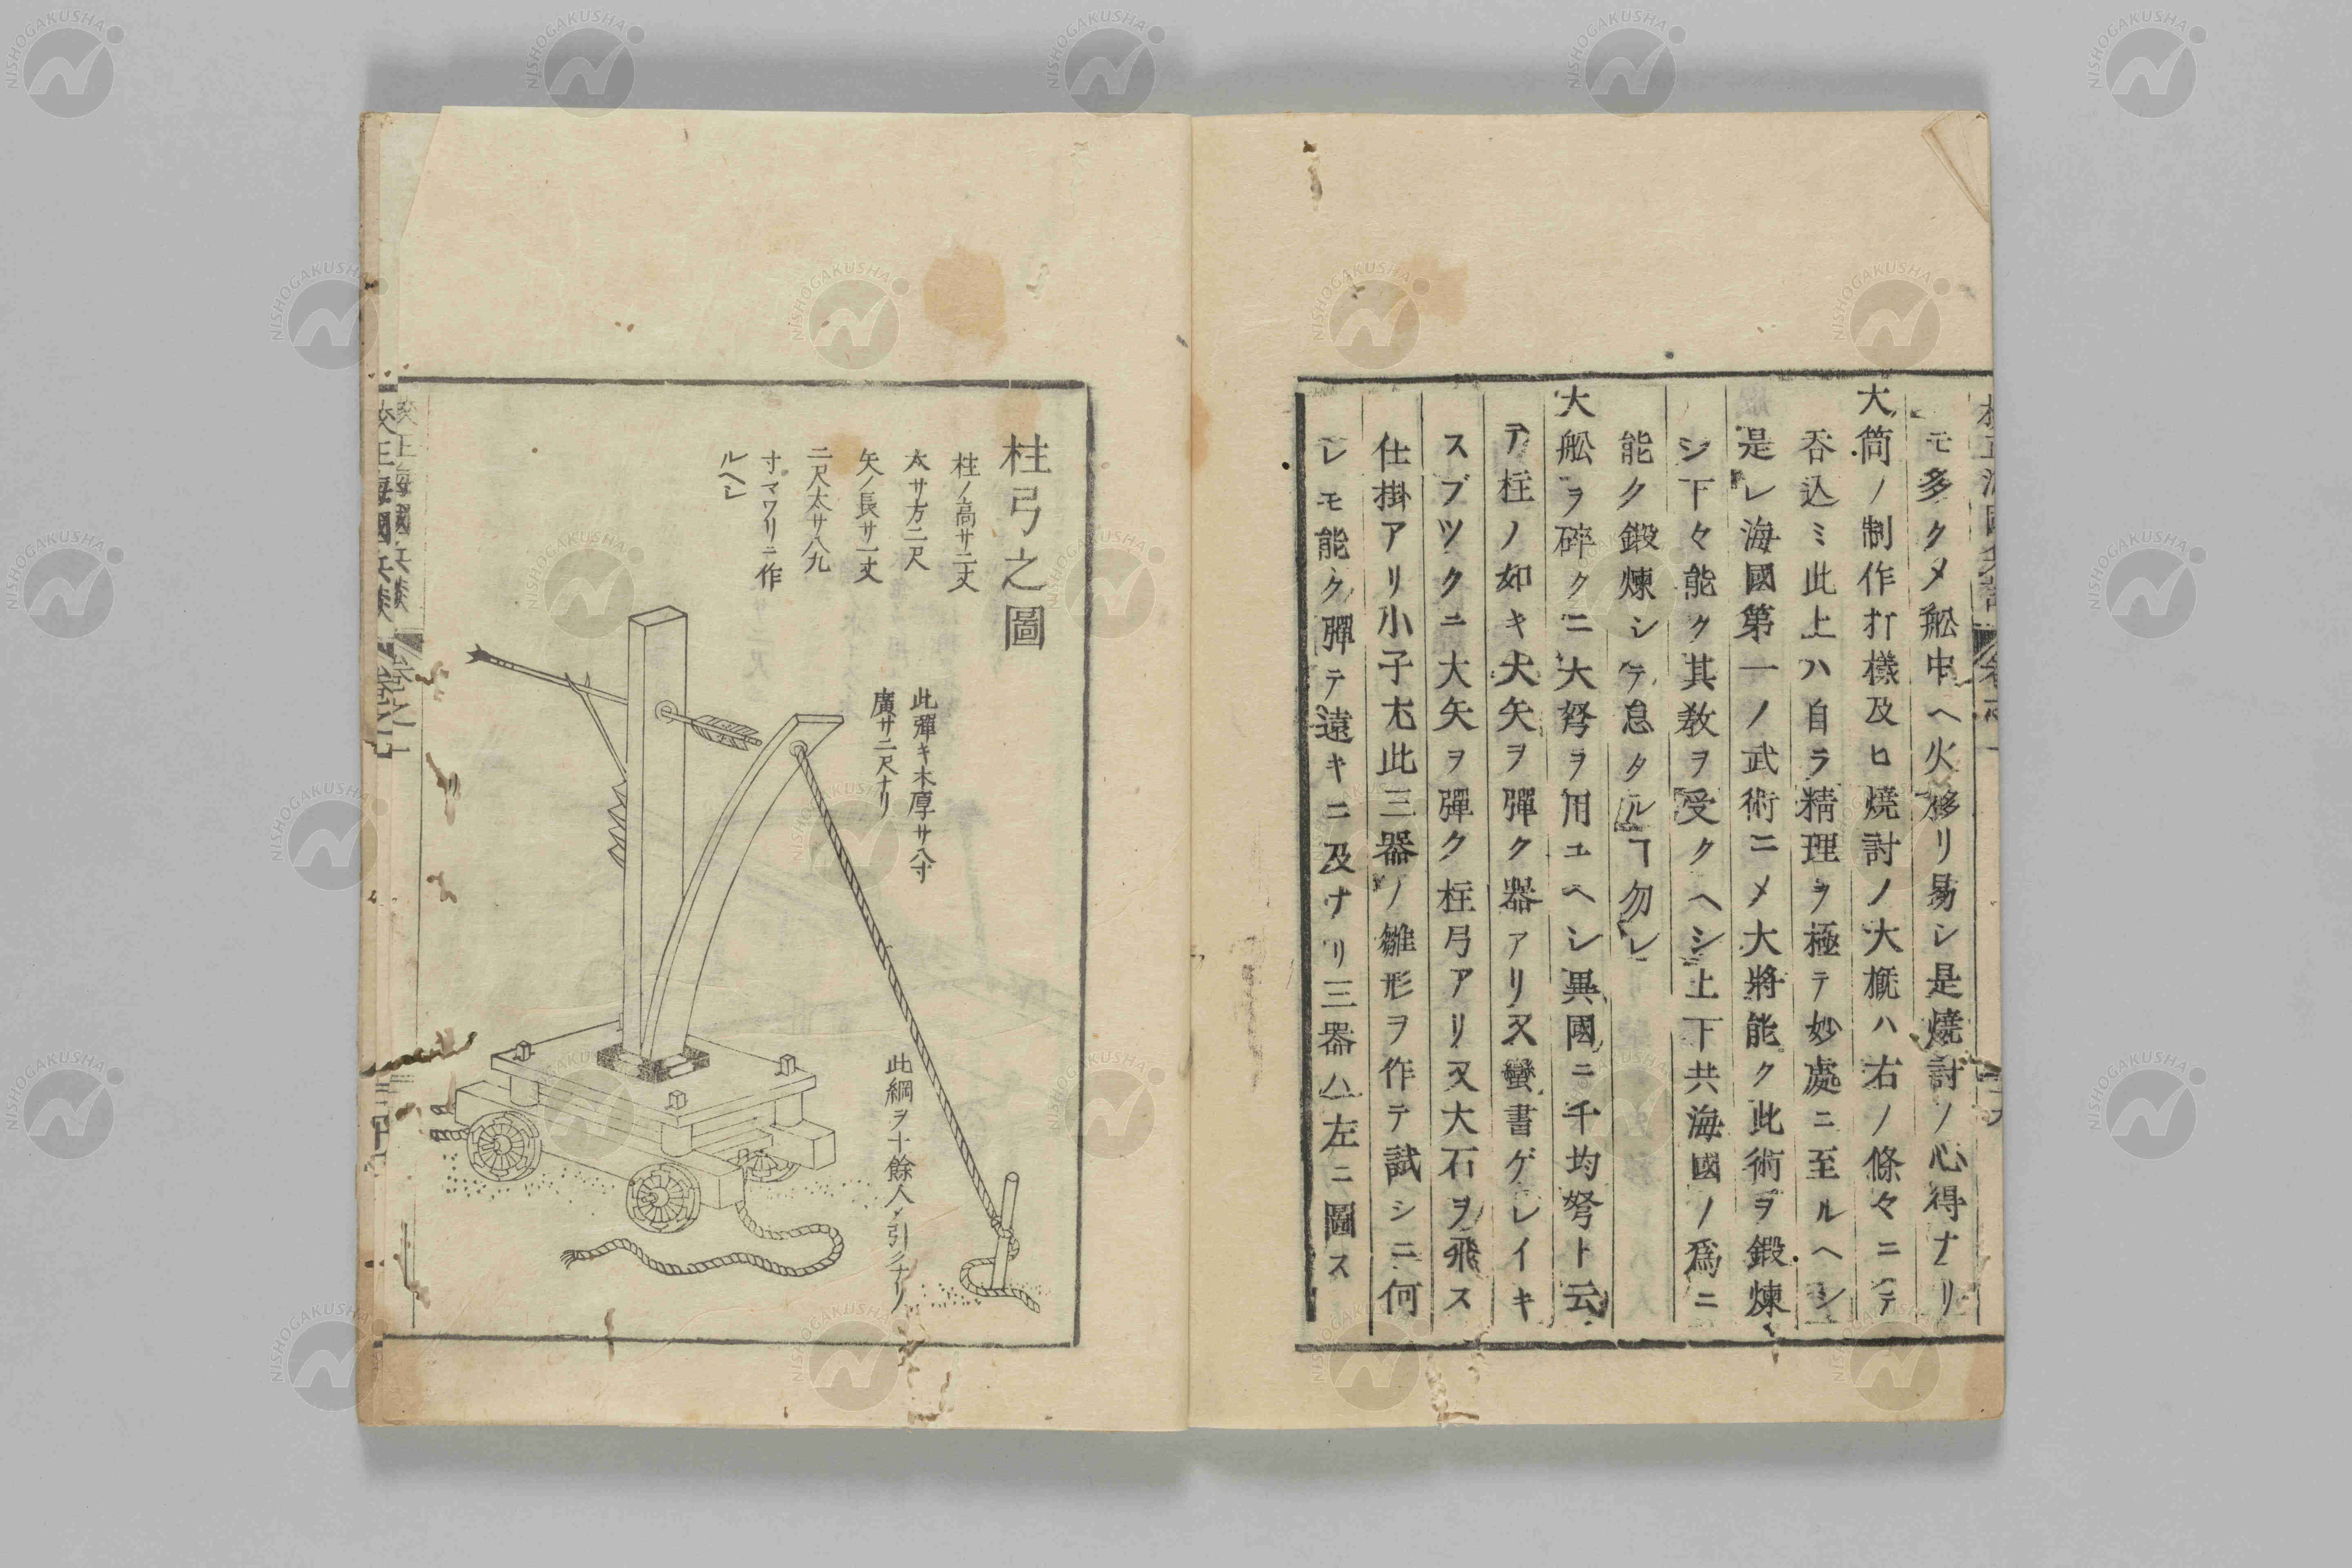 モ多クメ舩中ヘ火移リ易シ是燒討ノ心得ナリ
大筒ノ制作打樣及ヒ燒討ノ大概ハ右ノ條々ニテ
呑込ミ此上ハ自ラ精理ヲ極テ妙處ニ至ルヘシ
是レ海國第一ノ武術ニメ大將能ク此術ヲ鍛煉
シ下々能ク其敎ヲ受クヘシ上下共海國ノ爲ニ
能ク鍛煉シテ怠タルヿ勿レ
大舩ヲ碎クニ大弩ヲ用ユヘシ異國ニ千均弩ト云
ア柱ノ如キ大矢ヲ彈ク器アリ又蠻書ゲレイキ
スブツクニ大矢ヲ彈ク柱弓アリ又大石ヲ飛ス
仕掛アリ小子尤此三器ノ雛形ヲ作テ試シニ何
レモ能ク彈テ遠キニ及ナリ三器ハ左ニ圖ス
柱弓之圖
柱ノ高サ二丈
太サ方二尺
矢ノ長サ一丈
二尺太サ八九
寸マワリニ作
ルヘシ
此彈キ木厚サ八寸
廣サ二尺ナリ
此綱ヲ十餘人ノ引クナリ
NISHOGAKUSHA